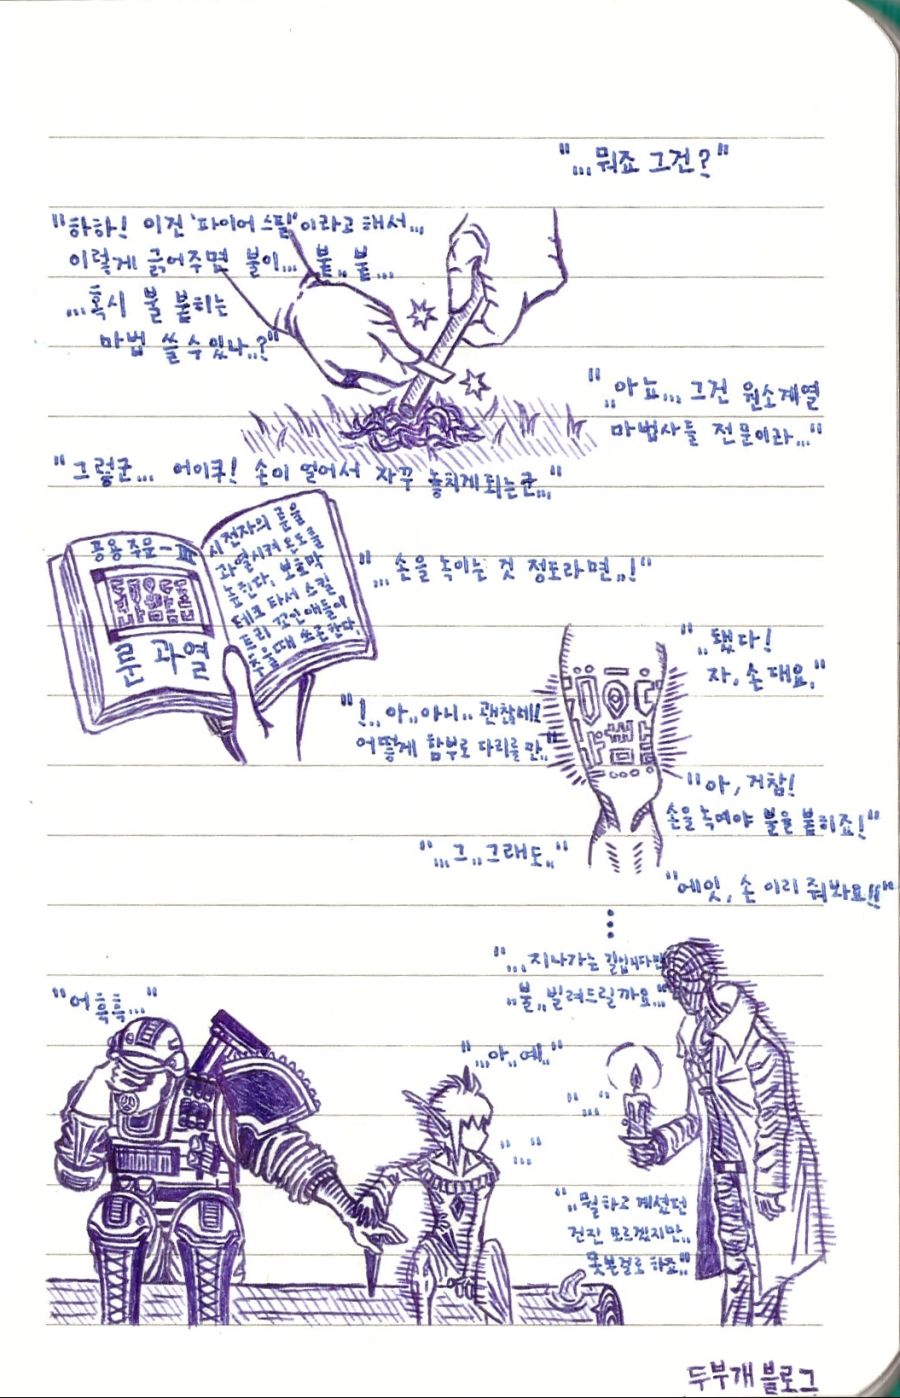 "...뭐죠 그건?"
"하하! 이건 '파이어스틸'이라고 해서...
이렇게 긁어주면 불이... 붙.. 붙...
...혹시 불 붙히는
마법 쓸 수 있나..?"
"..아뇨... 그건 원소계열
마법사들 전문이라..."
"그렇군... 어이쿠! 손이 얼어서 자꾸 놓치게 되는군..."
공용주문-III
룬 과열
시전자의 룬을
과열시켜 온도를
높힌다. 보호막
테크 타서 스킬
트리 꼬인 애들이
추울때 쓰곤 한다.
"...손을 녹이는 것 정도라면..!"
"..됐다!
자, 손 대요."
"!..아..아니.. 괜찮네!!
어떻게 함부로 다리를 만.."
"아, 거참!
손을 녹여야 불을 붙히죠!"
"...그..그래도.."
"에잇, 손 이리 줘봐요!!"
"...지나가는 길입니다만
..불..빌려드릴까요.."
"어흑흑..."
"...아..예.."
"..."
"..."
"..뭘 하고 계셨던
건진 모르겠지만..
못본걸로 하죠.."
두부개 블로그